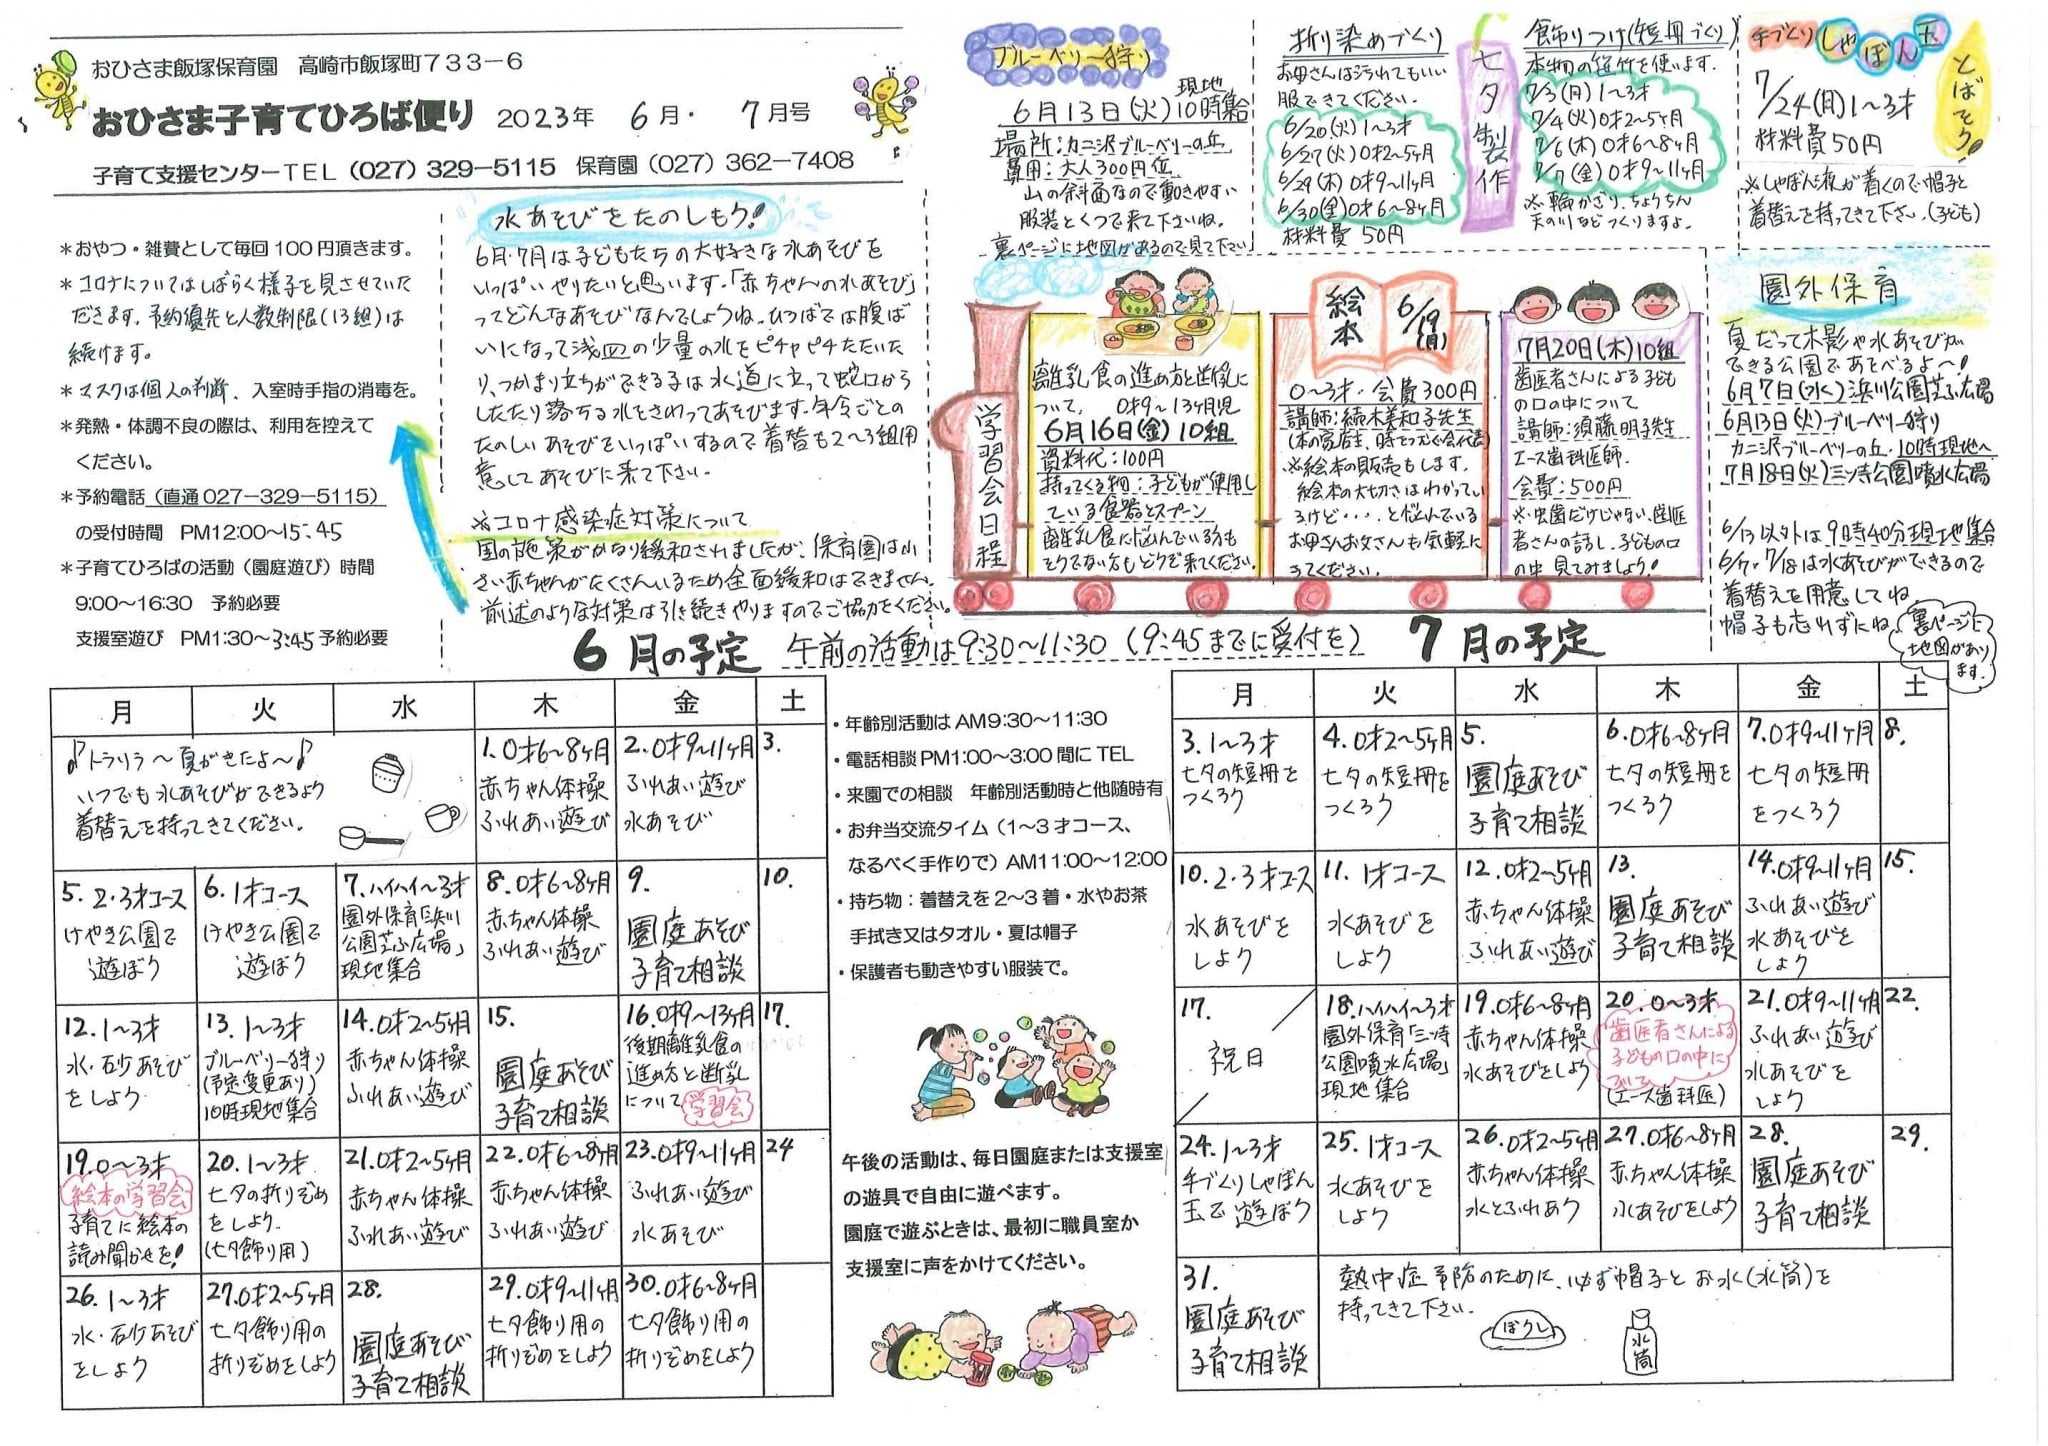 おひさま飯塚保育園　高崎市飯塚町７３３−６
おひさま子育てひろば便り　2023年　6月・　7月号
子育て支援センターTEL（027）329−5115　保育園（027）362−7408
＊おやつ・雑費として毎回100円頂きます。
＊コロナについてはしばらく様子を見させていた
だきます。予約優先と人数制限(13組)は
続けます。
＊マスクは個人の判断、入室時手指の消毒を。
＊発熱・体調不良の際は、利用を控えて
ください。
＊予約電話（直通027−329−5115）
の受付時間　PM12:00〜15:45
＊子育てひろばの活動（園庭遊び）時間
9:00〜16:30　予約必要
支援室遊び　PM1:30〜3:45 予約必要
水あそびをたのしもう!
6月・7月は子どもたちの大好きな水あそびを
いっぱいやりたいと思います。「赤ちゃんの水あそび」
ってどんなあそびなんでしょうね。ひろばでは腹ば
いになって浅皿の少量の水をピチャピチャたたいた
り、つかまり立ちができる子は水道に立って蛇口から
したたり落ちる水をさわってあそびます。年令ごとの
たのしいあそびをいっぱいするので着替も2〜3組用
意してあそびに来て下さい。
※コロナ感染症対策について
国の施策がかなり緩和されましたが、保育園は小
さい赤ちゃんがたくさんいるため全面緩和はできません。
前述のような対策は引き続きやりますのでご協力をください。
ブルーベリー狩り
6月13日(火)10時現地集合
場所:カニ沢ブルーベリーの丘
費用:大人300円位
山の斜面なので動きやすい
服装とくつで来て下さいね。
裏ページに地図があるので見て下さい
折り染めづくり
お母さんは汚れてもいい
服できてください。
6/20(火)1〜3才
6/27(火)0才2〜5ヶ月
6/29(木)0才9〜11ヶ月
6/30(金)0才6〜8ヶ月
材料費 50円
七夕製作
飾りつけ(短冊づくり)
本物の笹竹を使います。
7/3(月)1〜3才
7/4(火)0才2〜5ヶ月
7/6(木)0才6〜8ヶ月
7/7(金)0才9〜11ヶ月
※輪かざり、ちょうちん
天の川などつくりますよ。
手づくりしゃぼん玉
とばそう!
7/24(月)1〜3才
材料費50円
※しゃぼん液が着くので帽子と
着替えを持ってきて下さい。(子ども)
学習会日程
離乳食の進め方と断乳に
ついて、　0才9〜13ヶ月児
6月16日(金)10組
資料代:100円
持ってくる物:子どもが使用し
ている食器とスプーン
離乳食に悩んでいる方も
そうでない方もどうぞ来てください。
絵本　6/19(月)
0〜3才・会費300円
講師:続木美和子先生
(本の家店主、時をつむぐ会代表)
※絵本の販売もします。
絵本の大切さはわかってい
るけど・・・・と悩んでいる
お母さんお父さんも気軽に
きてください。
7月20日(木)10組
歯医者さんによる子ども
の口の中について
講師:須藤明子先生
エース歯科医師.
会費:500円
※虫歯だけじゃない、歯医
者さんの話し、子どもの口
の中 見てみましょう!
園外保育
夏だって木影や水あそびが
できる公園であそべるよ〜!
6月7日(水)浜川公園芝ふ広場
6月13日(火)ブルーベリー狩り
カニ沢ブルーベリーの丘・10時現地へ
7月18日(火)三ツ寺公園噴水広場
6/13以外は9時40分現地集合
6/7・7/18は水あそびができるので
着替えを用意してね
帽子も忘れずにね
裏ページに
地図があり
ます。
6月の予定　午前の活動は9:30〜11:30 (9:45までに受付を)　7月の予定
月　火　水　木　金　土
♪トラリラ〜夏がきたよ〜♪
いつでも水あそびができるよう
着替えを持ってきてください。
1. 0才6〜8ヶ月
赤ちゃん体操
ふれあい遊び
2. 0才9〜11ヶ月
ふれあい遊び
水あそび
3.
5. 2・3才コース
けやき公園で
遊ぼう
6. 1才コース
けやき公園で
遊ぼう
7. ハイハイ〜3才
園外保育「浜川
公園芝ふ広場」
現地集合
8. 0才6〜8ヶ月
赤ちゃん体操
ふれあい遊び
9.
園庭あそび
子育て相談
10.
12. 1〜3才
水・砂あそび
をしよう
13. 1〜3才
ブルーベリー狩り
(予定変更あり)
10時現地集合
14. 0才2〜5ヶ月
赤ちゃん体操
ふれあい遊び
15.
園庭あそび
子育て相談
16. 0才9〜13ヶ月
後期離乳食の
進め方と断乳
について 学習会
17.
19. 0〜3才
絵本の学習会
子育てに絵本の
読み聞かせを!
20. 1〜3才
七夕の折りぞめ
をしよう.
(七夕飾り用)
21. 0才2〜5ヶ月
赤ちゃん体操
ふれあい遊び
22. 0才6〜8ヶ月
赤ちゃん体操
ふれあい遊び
23. 0才9〜11ヶ月
ふれあい遊び
水あそび
24
26. 1〜3才
水・砂あそび
をしよう
27. 0才2〜5ヶ月
七夕飾り用の
折りぞめをしよう
28.
園庭あそび
子育て相談
29. 0才9〜11ヶ月
七夕飾り用の
折りぞめをしよう
30. 0才6〜8ヶ月
七夕飾り用の
折りぞめをしよう
・年齢別活動はAM9:30〜11:30
・電話相談PM1:00〜3:00間にTEL
・来園での相談　年齢別活動時と他随時有
・お弁当交流タイム（1〜3才コース、
なるべく手作りで）AM11:00〜12:00
・持ち物：着替えを2〜3着・水やお茶
手拭き又はタオル・夏は帽子
・保護者も動きやすい服装で。
午後の活動は、毎日園庭または支援室
の遊具で自由に遊べます。
園庭で遊ぶときは、最初に職員室か
支援室に声をかけてください。
月　火　水　木　金　土
3. 1〜3才
七夕の短冊を
つくろう
4. 0才2〜5ヶ月
七夕の短冊を
つくろう
5.
園庭あそび
子育て相談
6. 0才6〜8ヶ月
七夕の短冊を
つくろう
7. 0才9〜11ヶ月
七夕の短冊
をつくろう
8.
10. 2・3才コース
水あそびを
しよう
11. 1才コース
水あそびを
しよう
12. 0才2〜5ヶ月
赤ちゃん体操
ふれあい遊び
13.
園庭あそび
子育て相談
14. 0才9〜11ヶ月
ふれあい遊び
水あそびを
しよう
15.
17.
祝日
18. ハイハイ〜3才
園外保育「三ツ寺
公園噴水広場」
現地集合
19. 0才6〜8ヶ月
赤ちゃん体操
水あそびをしよう
20. 0〜3才
歯医者さんによる
子どもの口の中に
ついて
(エース歯科医)
21. 0才9〜11ヶ月
ふれあい遊び
水あそびを
しよう
22.
24. 1〜3才
手づくりしゃぼん
玉で遊ぼう
25. 1才コース
水あそびを
しよう
26. 0才2〜5ヶ月
赤ちゃん体操
水とふれあう
27. 0才6〜8ヶ月
赤ちゃん体操
水あそびをしよう
28.
園庭あそび
子育て相談
29.
31.
園庭あそび
子育て相談
熱中症予防のために、必ず帽子とお水(水筒)を
持ってきて下さい.
ぼうし
水筒